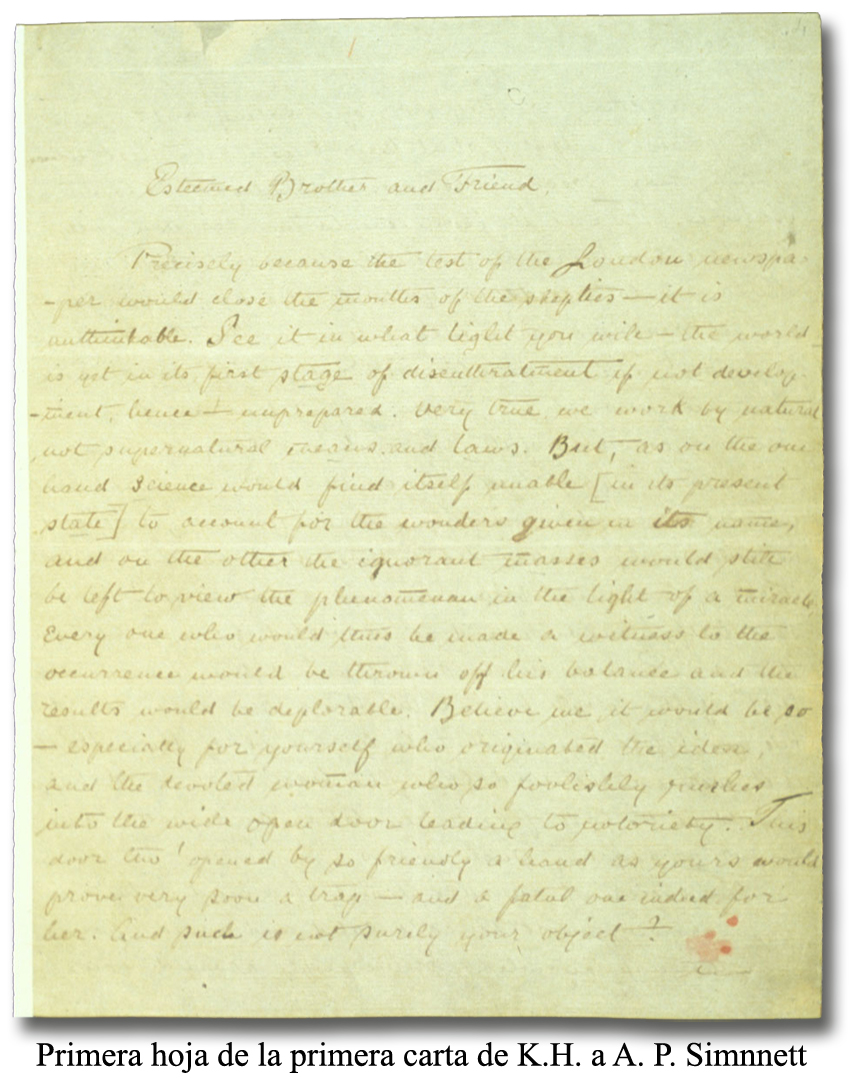 1
Esteemed Brother and Friend,
Precisely because the test of the London newspa-
-per would close the mouths of the skeptics — it is
unthinkable. See it in what light you will — the world
is yet in its first stage of disenthralment if not develop-
-ment, hence — unprepared. Very true, we work by natural
not supernatural means and laws. But, as on the one
hand Science would find itself unable [in its present
state] to account for the wonders given in its name,
and on the other the ignorant masses would still
be left to view the phenomenon in the light of a miracle
Every one who would thus be made a witness to the
occurrence would be thrown off his balance and the
results would be deplorable. Believe me, it would be so
— especially for yourself who originated the idea,
and the devoted woman who so foolishly rushes
into the wide open door leading to notoriety. This
door tho' opened by so friendly a hand as yours would
prove very soon a trap — and a fatal one indeed for
her. And such is not surely your object?
Primera hoja de la primera carta de K.H. a A. P. Simnnett